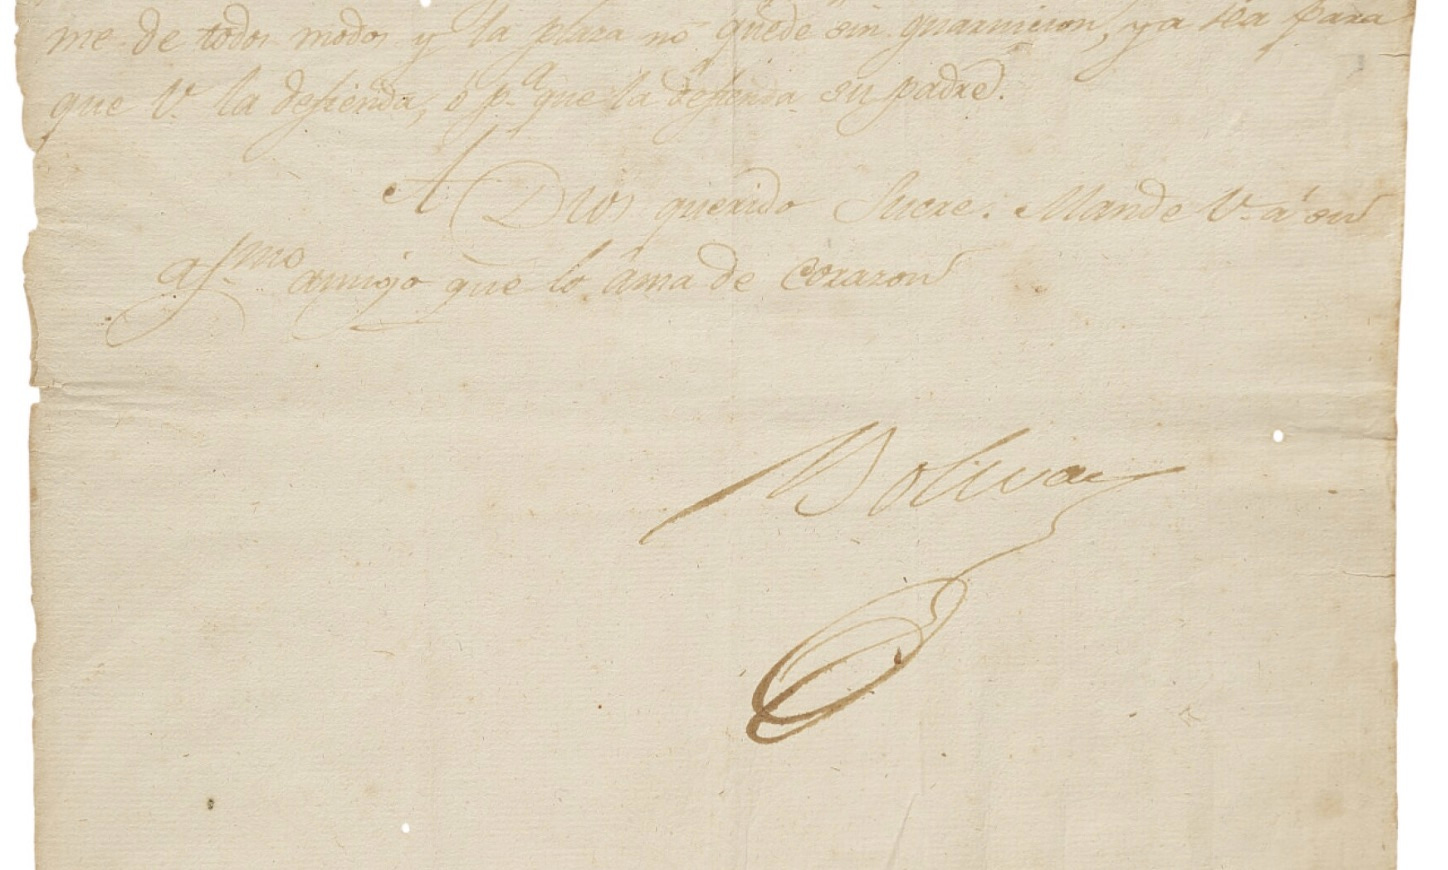 me de todos modos y la plaza no quede sin guarnicion, ya sea para
que V. la defienda, ó p.a que la defienda su padre.
A Dios querido Sucre. Mande V. á su
af.mo amigo que lo ama de corazon
Bolivar